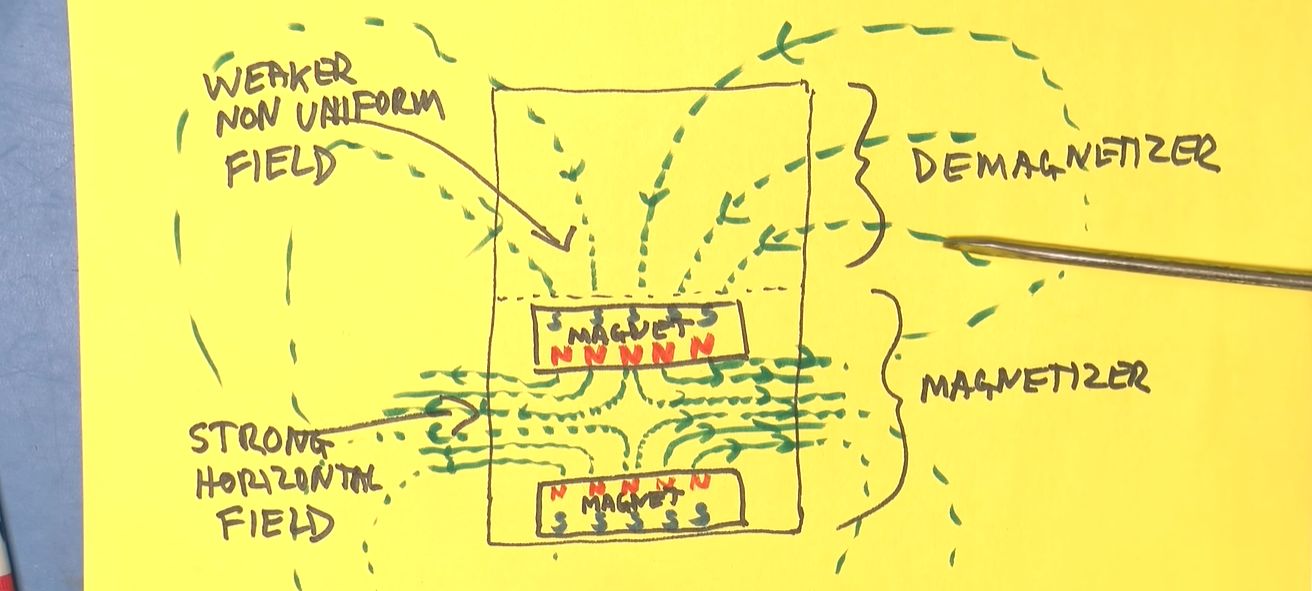 WEAKER
NON UNIFORM
FIELD
DEMAGNETIZER
S S S S S
MAGNET
N N N N N
MAGNETIZER
STRONG
HORIZONTAL
FIELD
N N N N N
MAGNET
S S S S S